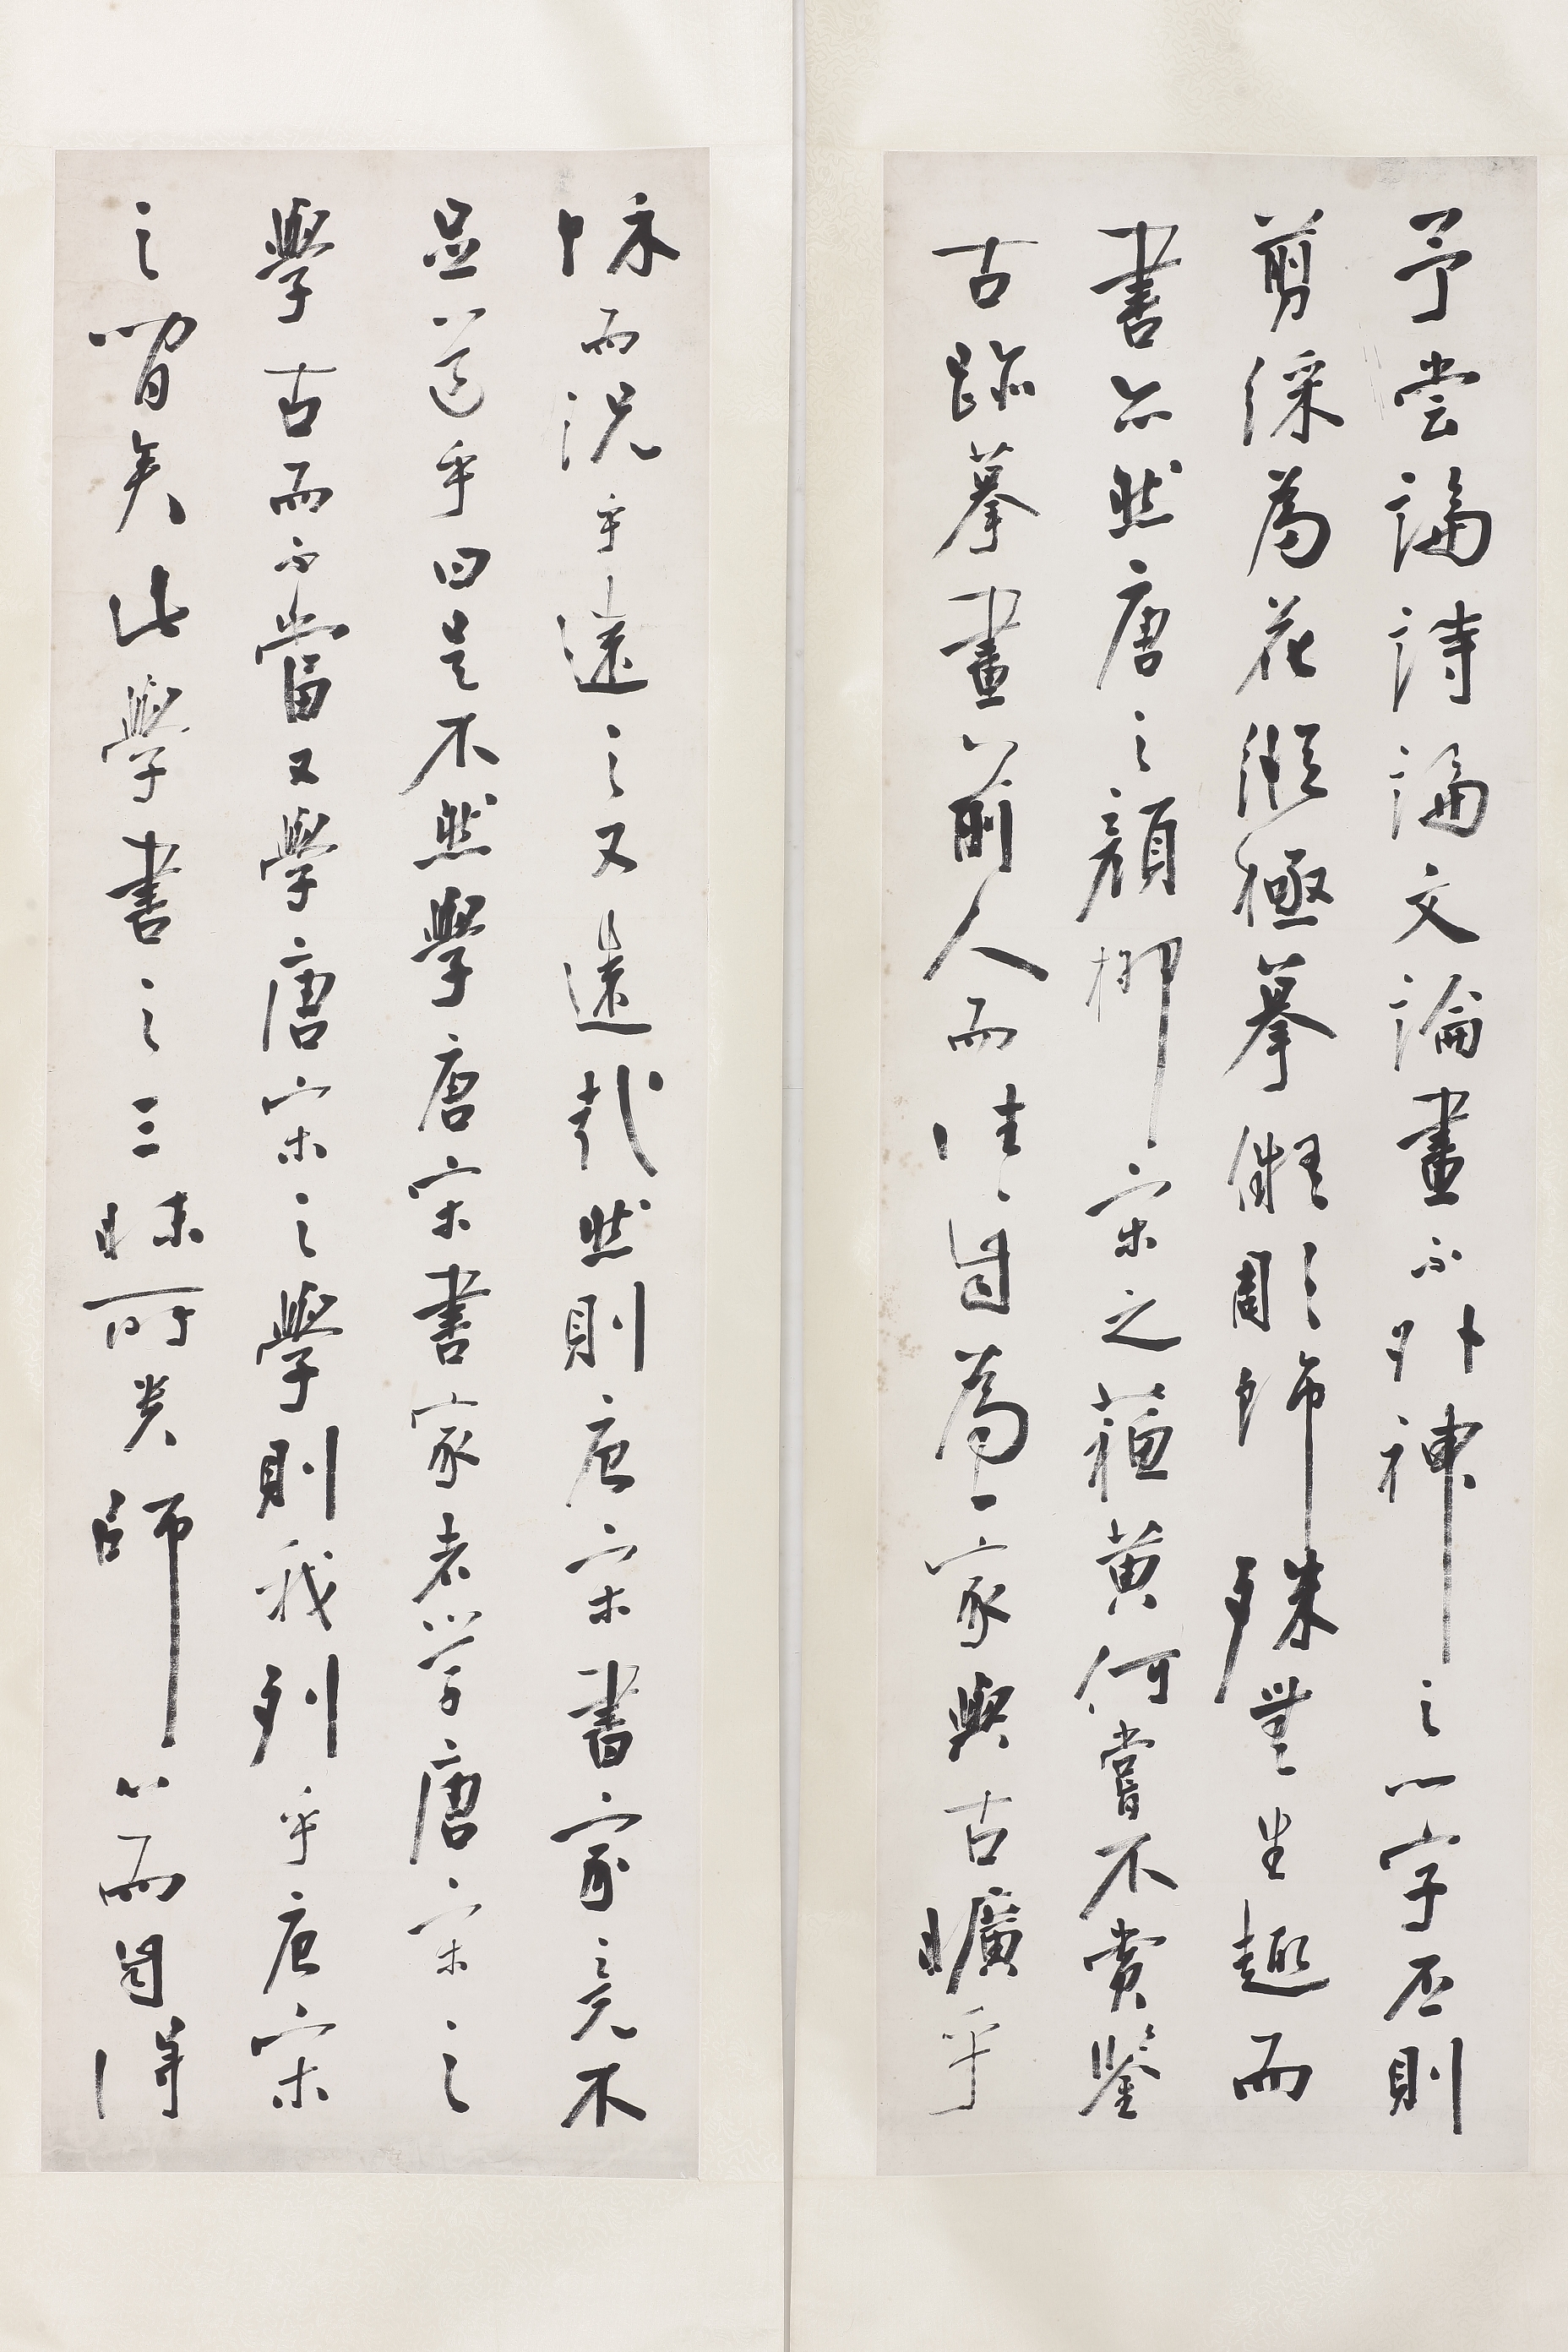 予尝論詩論文論畫不外神之一字否則
剪綵為花縱極摹儗彫飾殊無生趣而
書亦然唐之顏柳宋之蘓黄何嘗不賞鑒
古跡摹畫前人而佳自為一家與古曠乎
而況乎遠之又遠哉然則唐宋書家竟不
足道乎曰是不然學唐宋書家者學唐宋之
學古而不當又學唐宋之學則我列乎唐宋
之間矣此學書之三昧所貴師心而自得